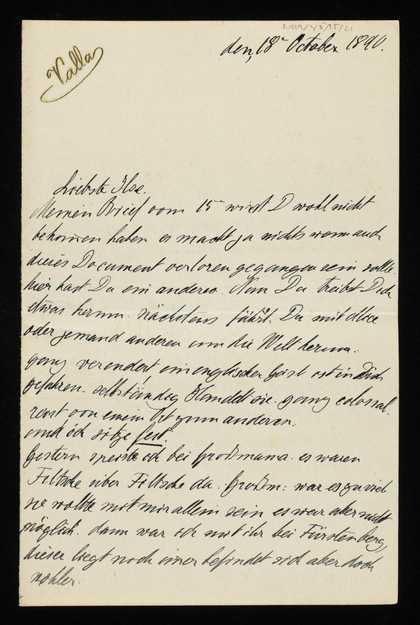 Valla
den, 18 October 1890.
Liebste Ilse.
Meinen Brief vom 15 wirst D wohl nicht
bekommen haben es macht ja nichts wenn auch
dieses Document verloren gegangen sein sollte
hier hast Du ein anderes. Nun Du treibst Dich
etwas herum. nächstens fährst Du mit
oder jemand anderen um die Welt herum.
ganz verendert ein englischer Geist ist in Dich
gefahren. selbständig Handelt sie. ganz colossal.
reist von einem Ort zum anderen.
und ich sitze fest.
Gestern speiste ich bei Großmama. es waren
Filtsche über Filtsche da. Großm: war es zu viel
sie wollte mit mir allein sein es war aber nicht
möglich. dann war ich mit ihr bei Fürstenberg,
dieser liegt noch immer befindet sich aber doch
wohler.